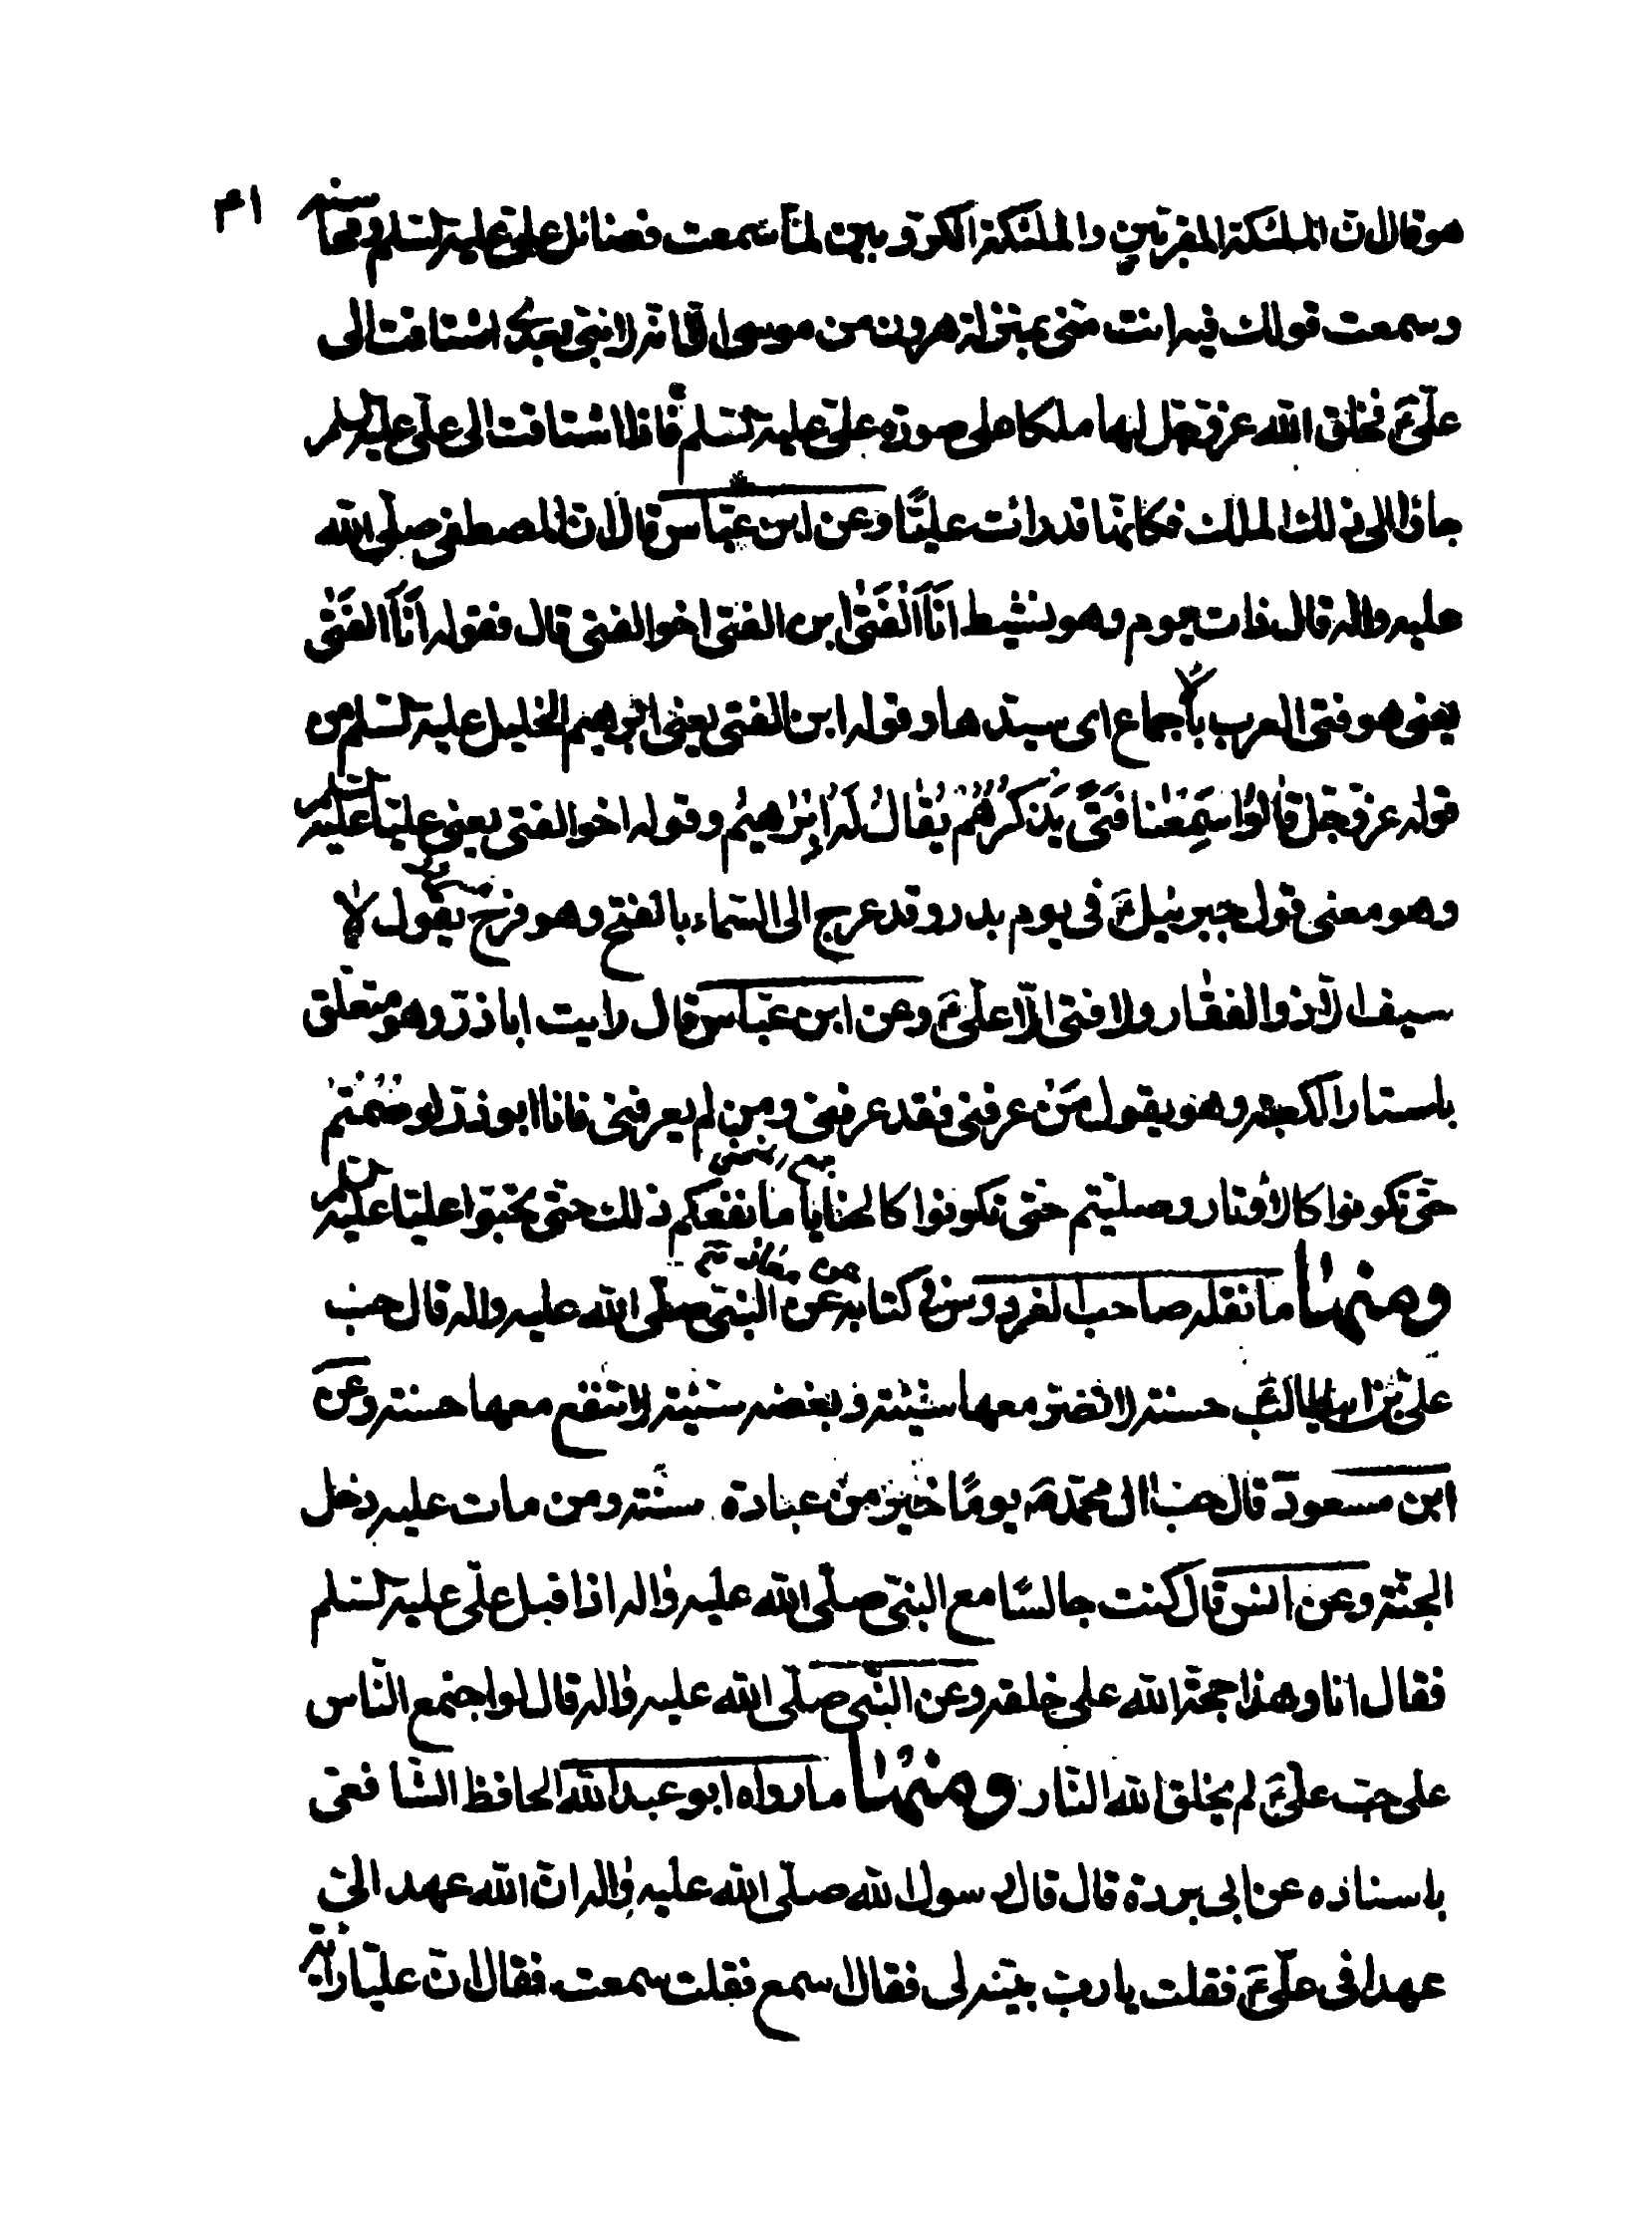 هو قال ان الملئكة المقربين والملئكة الكروبين لما سمعت فضائل علي عليه السلم ومحاسنه
وسمعت قولك فيه انت مني بمنزلة هرون من موسى الا انه لا نبي بعدي اشتاقت الى
علي ع فخلق الله عز وجل لها ملكا على صورة علي عليه السلم فاذا اشتاقت الى علي عليه السلم
جاؤا الى ذلك الملك فكانما قد رات عليا وعن ابن عباس قال ان المصطفى صلى الله
عليه واله قال ذات يوم وهو نشيط اَنَا اَلْفَتىٰ ابن الفتى اخو الفتى قال فقوله اَنَا الفَتٰى
يعنى هو فتى العرب بالاجماع اى سيدها وقوله ابن الفتى يعنى ابرهيم الخليل عليه السلم من
قوله عز وجل قٰالُوا سَمِعْنا فَتىً يَذكُرُهُم يُقٰالُ لَهُ اِبْرٰهيمُ وقوله اخو الفتى يعنى عليا عليه السلم
وهو معنى قول جبرئيل ع فى يوم بدر وقد عرج الى السماء بالفتح وهو فرح يقول لا
سيف الا ذو الفقار ولا فتى الا علي ع وعن ابن عباس قال رايت اباذر وهو متعلق
باستار الكعبه وهو يقول مَنْ عرفنى فقد عرفنى ومن لم يعرفنى فانا ابوذر لو صُمْتم
حتى تكونوا كالأوتار وصليتم حتى تكونوا كالحنايا ما نفعكم ذلك حتى تحبوا عليا عليه السلم
ومنها ما نقله صاحب الفردوس فى كتابه عن النبي صلى الله عليه واله قال حب
علي بن ابيطالب ع حسنة لا تضر معها سيئة وبغضه سيئة لا تنفع معها حسنة وعن
ابن مسعود قال حب ال محمد ص يومًا خير من عبادة سنة ومن مات عليه دخل
الجنة وعن انس قال كنت جالسًا مع النبي صلى الله عليه واله اذ اقبل علي عليه السلم
فقال انا وهذا حجة الله على خلقه وعن النبي صلى الله عليه واله قال لو اجتمع الناس
على حب علي ع لم يخلق الله النار ومنها ما رواه ابو عبد الله الحافظ الشافعى
باسناده عن ابى بردة قال قال رسول الله صلى الله عليه واله ان الله عهد الي
عهدا فى علي ع فقلت يا رب بينه لى فقال اسمع فقلت سمعت فقال ان عليا راية